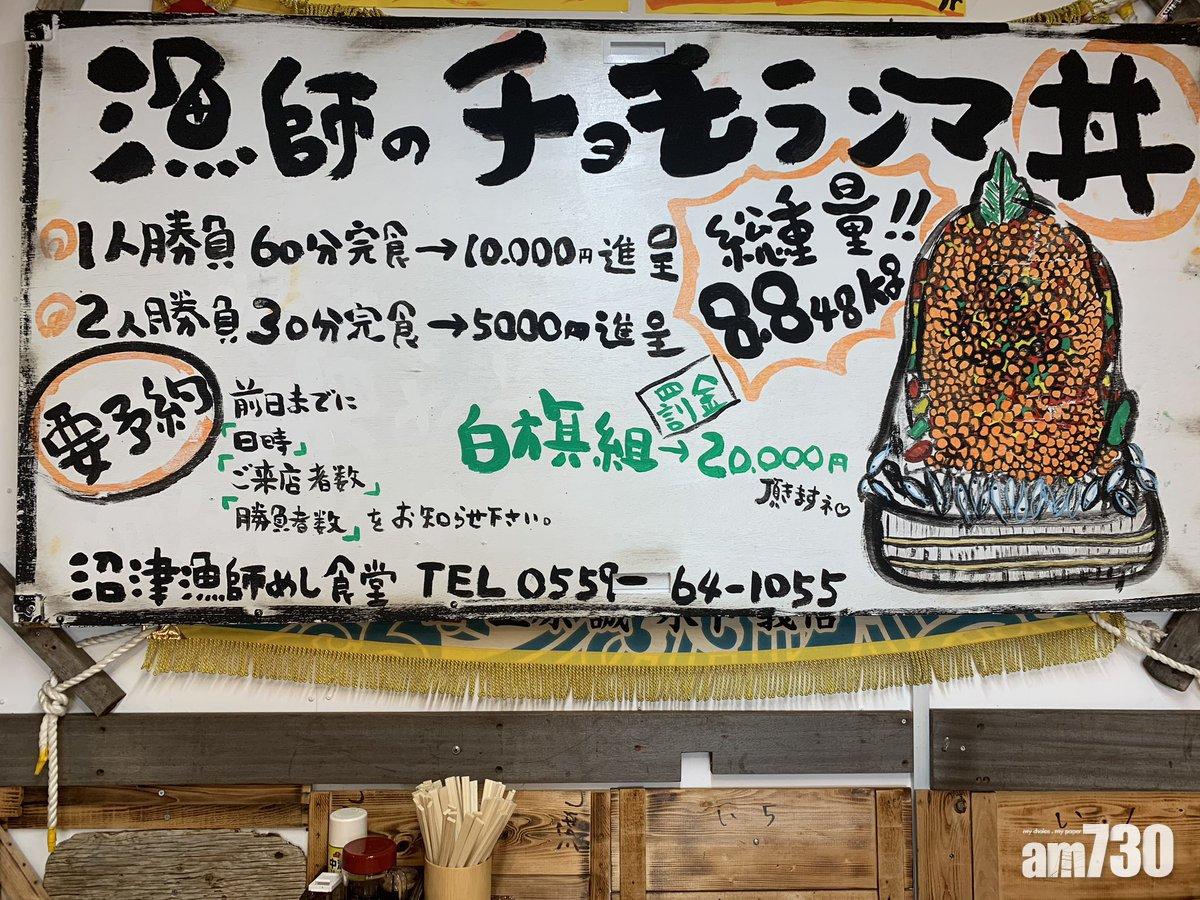 漁師のチョモランマ丼
1人勝負 60分完食→10.000円進呈
総重量!!
8.848kg
2人勝負 30分完食→5000円進呈
要予約
前日までに
「日時」
「ご来店者数」
「勝負者数」をお知らせ下さい。
罰金
白旗組→20.000円
頂きますネ♡
沼津漁師めし食堂 TEL 0559-64-1055
いち
my choice . my paper
am730